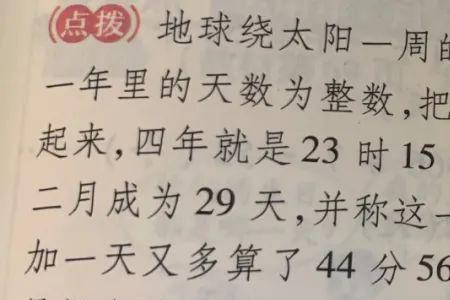 点拨 地球绕太阳一周的
一年里的天数为整数,把
起来,四年就是23时15
二月成为29天,并称这一
加一天又多算了44分56